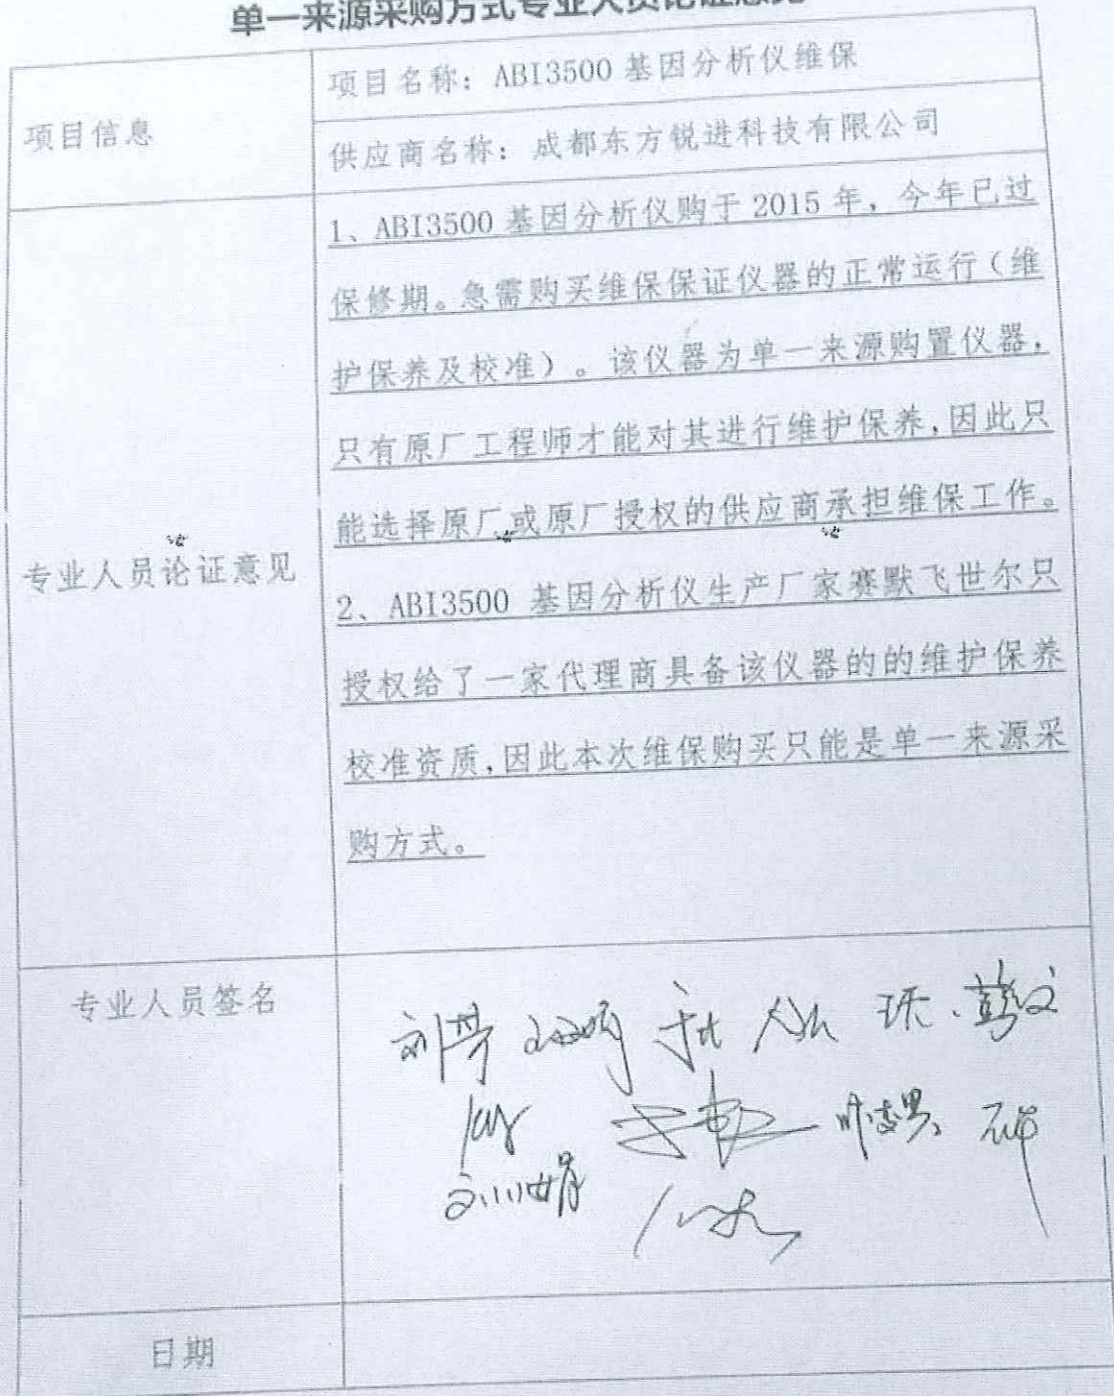 单一来源采购方式专业人员论证意见
项目信息
项目名称：ABI3500 基因分析仪维保
供应商名称：成都东方锐进科技有限公司
专业人员论证意见
1、ABI3500 基因分析仪购于 2015 年，今年已过
保修期。急需购买维保保证仪器的正常运行（维
护保养及校准）。该仪器为单一来源购置仪器，
只有原厂工程师才能对其进行维护保养，因此只
能选择原厂或原厂授权的供应商承担维保工作。
2、ABI3500 基因分析仪生产厂家赛默飞世尔只
授权给了一家代理商具备该仪器的的维护保养
校准资质，因此本次维保购买只能是单一来源采
购方式。
专业人员签名
刘芳
刘川娟
日期